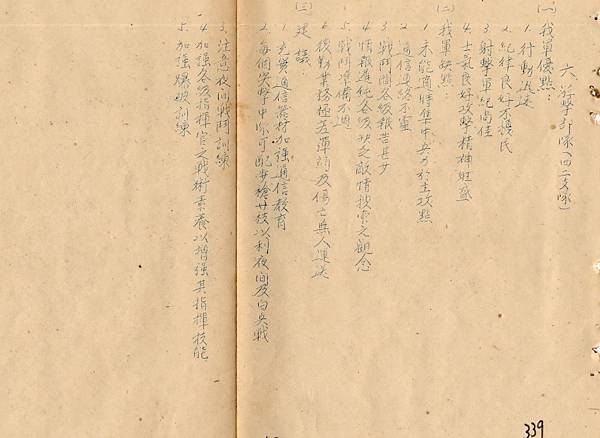 六、游擊部隊（四二支隊）
(一) 我軍優點：
1. 行動迅速
2. 紀律良好不擾民
3. 射擊軍紀尚佳
4. 士氣良好攻擊精神旺盛
(二) 我軍缺點：
1. 未能適時集中兵力於主攻點
2. 通信連絡不靈
3. 戰鬥間各級報告甚少
4. 情報遲鈍各級缺乏敵情搜索之觀念
5. 戰鬥準備不週
6. 後勤業務極差彈藥及傷亡無人運送
(三) 建議
1. 充實通信器材加強通信教育
2. 每個突擊中隊可配步槍廿枝以利夜間及白兵戰
3. 注意夜間戰鬥訓練
4. 加強各級指揮官之戰術素養以增強其指揮技能
5. 加強爆破訓練
339